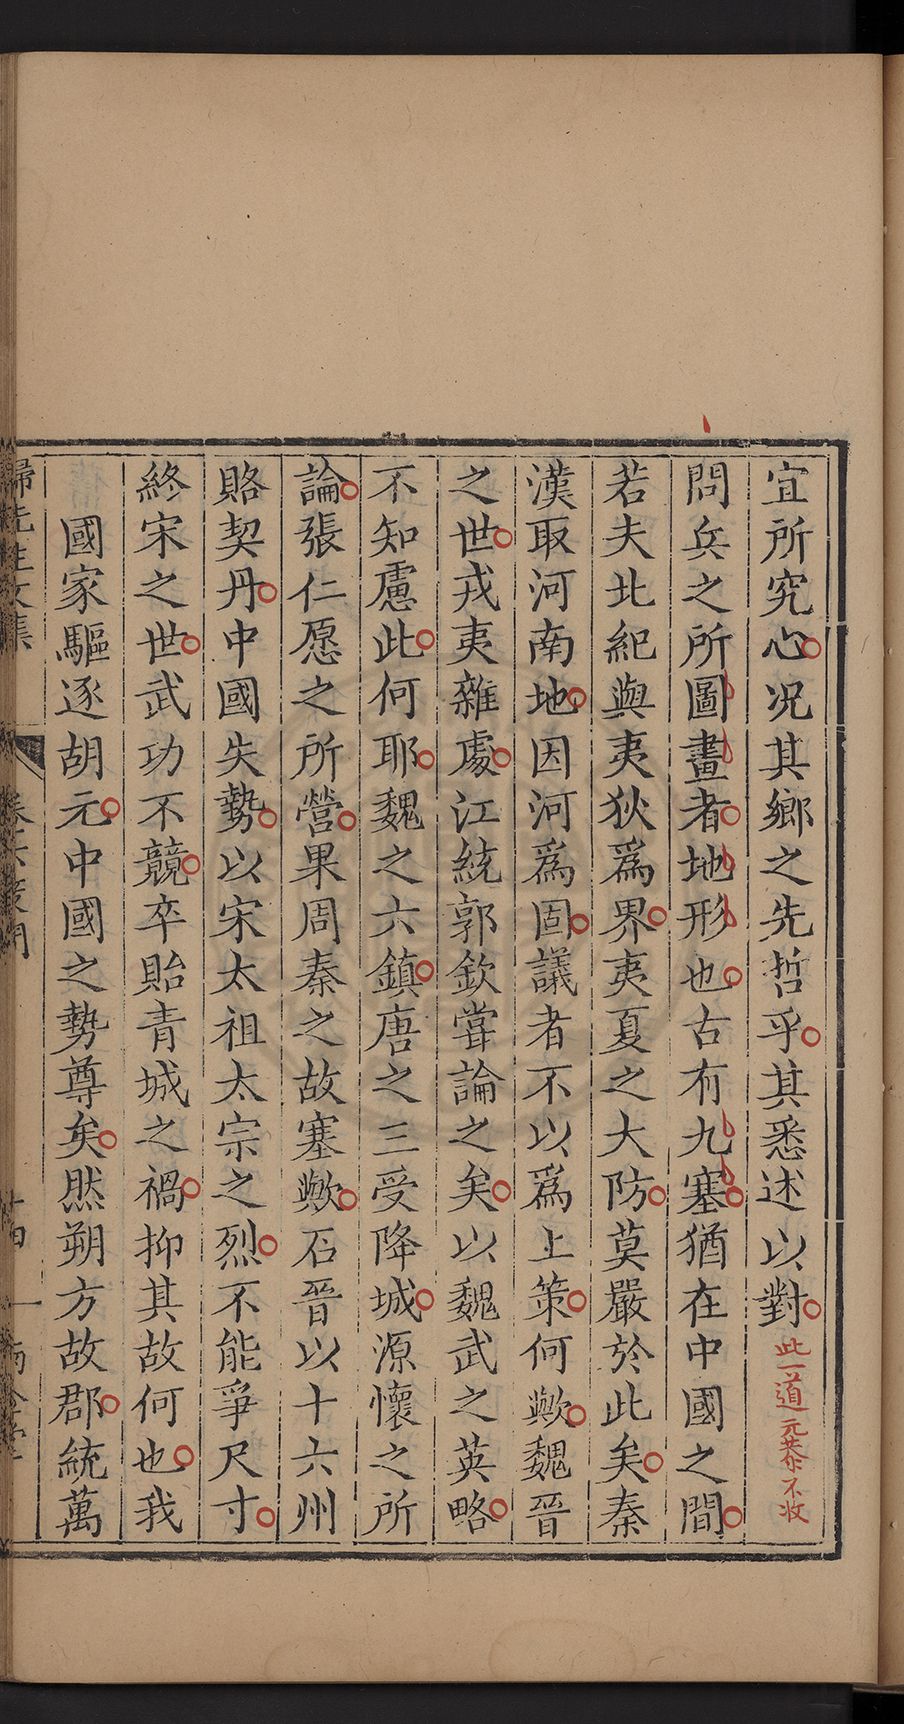 宜所究心况其鄉之先哲乎其悉述以對
此一道元恭不收
問兵之所圖畫者地形也古有九塞猶在中國之間
若夫北紀與夷狄爲界夷夏之大防莫嚴於此矣秦
漢取河南地因河爲固議者不以爲上策何歟魏晉
之世戎夷雜處江統郭欽嘗論之矣以魏武之英略
不知慮此何耶魏之六鎮唐之三受降城源懷之所
論張仁愿之所營果周秦之故塞歟石晉以十六州
賂契丹中國失勢以宋太祖太宗之烈不能爭尺寸
終宋之世武功不競卒貽青城之禍抑其故何也我
國家驅逐胡元中國之勢尊矣然朔方故郡統萬
歸先生文集